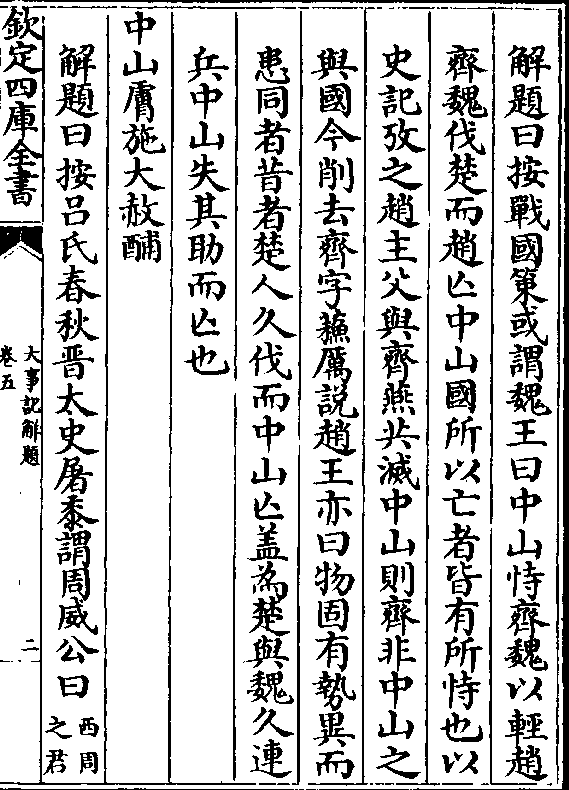 解題曰按戰國策或謂魏王曰中山恃齊魏以輕趙
齊魏伐楚而趙亾中山國所以亡者皆有所恃也以
史記攷之趙主父與齊燕共滅中山則齊非中山之
與國今削去齊字蘓厲説趙王亦曰物固有勢異而
患同者昔者楚人久伐而中山亾盖為楚與魏久連
兵中山失其助而亾也
中山膚施大赦酺
解題曰按吕氏春秋晋太史屠黍謂周威公曰西周
之君
欽定四庫全書
大事記解題
卷五
二